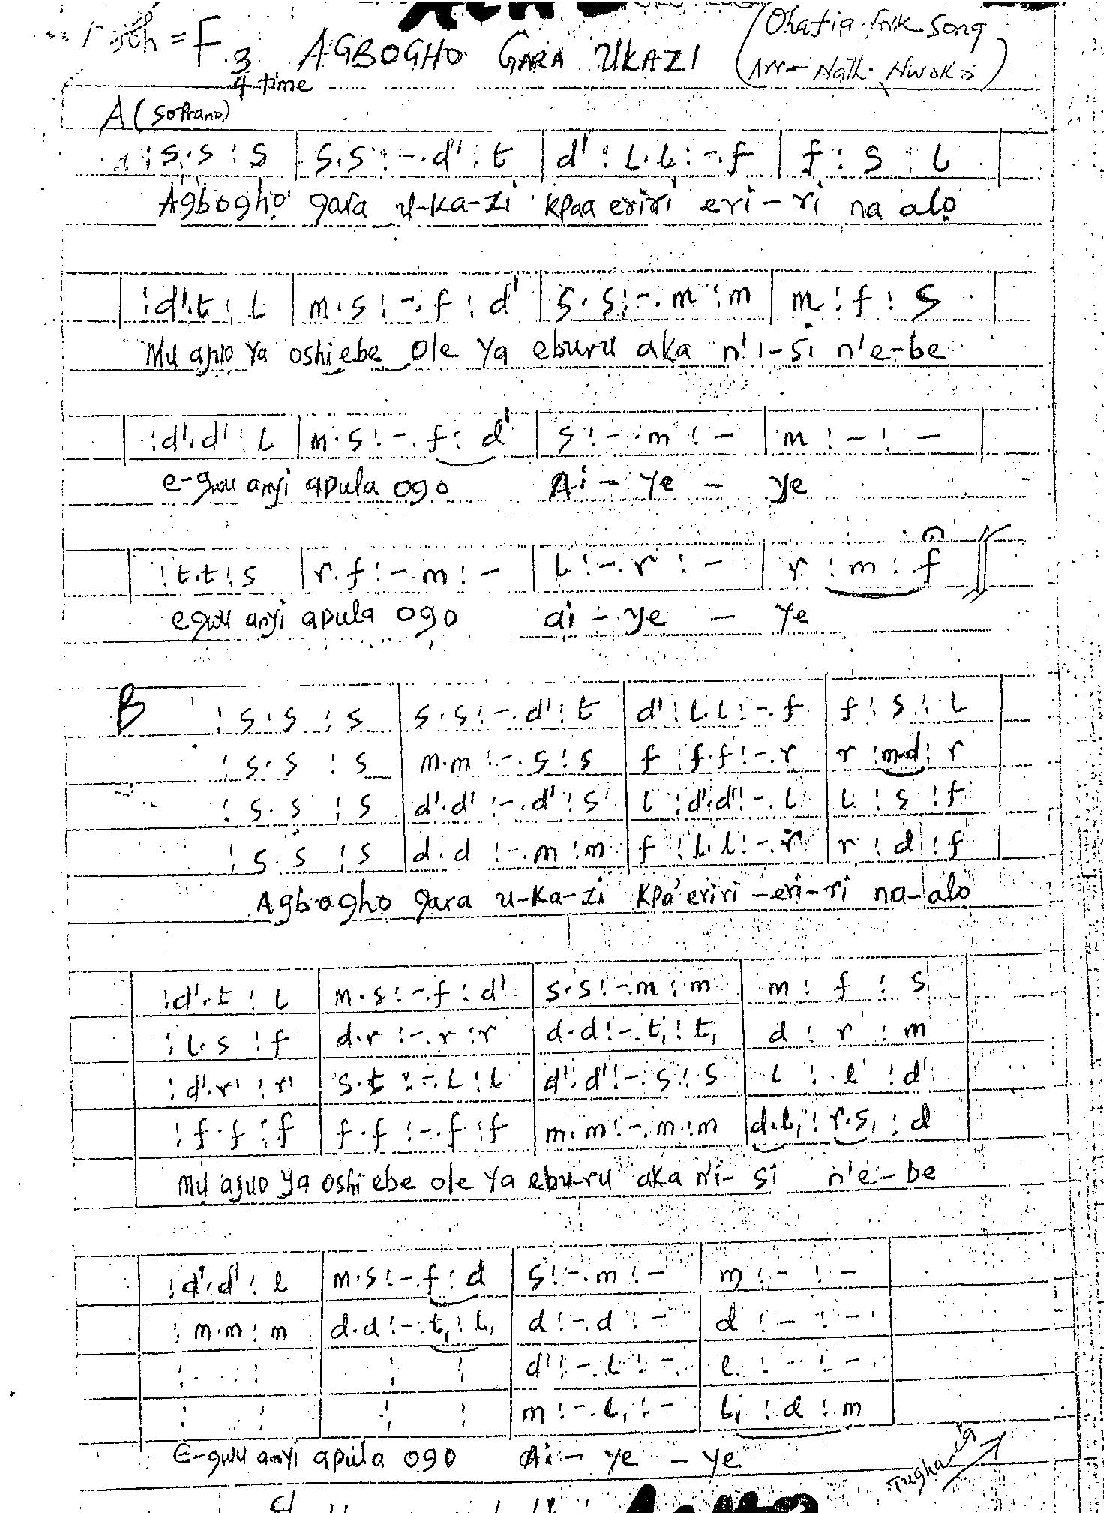 doh = F. AGBOGHO GARA UKAZI (Ohafia folk song
3/4 time Arr- Nath. Nwoko)
A (Soprano)
: s.s : s | s.s : -.d' : t | d' : l.l : -.f | f : s : l
Agbogho gara u-ka-zi kpaa eriri eri-ri na alo
: d'.t : l | m.s : -.f : d' | s.s : -.m : m | m : f : s
Mu ajuo ya oshi ebe ole ya eburu aka n'i-si n'e-be
: d'.d' : l | m.s : -.f : d' | s : -.m : - | m : - : -
e-gwu anyi apula ogo Ai - ye - ye
: t.t : s | r.f : -.m : - | l : -.r : - | r : m : f
egwu anyi apula ogo ai - ye - ye
B : s.s : s | s.s : -.d' : t | d' : l.l : -.f | f : s : l
: s.s : s | m.m : -.s : s | f : f.f : -.r | r : m.d : r
: s.s : s | d'.d' : -.d' : s | l : d'.d' : -.l | l : s : f
: s.s : s | d.d : -.m : m | f : l.l : -.r | r : d : f
Agbogho gara u-ka-zi kpa eriri -eri-ri na-alo
: d'.t : l | m.s : -.f : d' | s.s : -.m : m | m : f : s
: l.s : f | d.r : -.r : r | d.d : -.t, : t, | d : r : m
: d'.r' : r' | s.t : -.l : l | d'.d' : -.s : s | l : l : d'
: f.f : f | f.f : -.f : f | m.m : -.m : m | d.l, : r.s, : d
Mu ajuo ya oshi ebe ole ya ebu-ru aka n'i-si n'e-be
: d'.d' : l | m.s : -.f : d | s : -.m : - | m : - : -
: m.m : m | d.d : -.t, : t, | d : -.d : - | d : - : -
: . : | : : | d' : -.l : - | l : - : -
: : | : : | m : -.l, : - | l, : d : m
E-gwu anyi apula ogo Ai - ye - ye
Tugharia